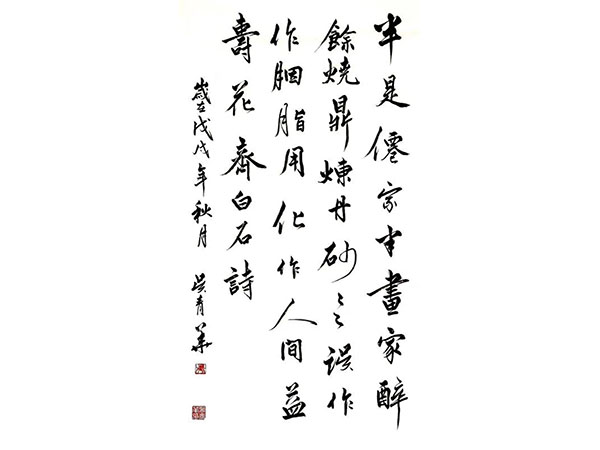 半是僊家半畫家醉
餘燒鼎煉丹砂〻〻誤作
作胭脂用化作人間益
壽花齊白石詩
歲在戊戌年秋月 吴青華